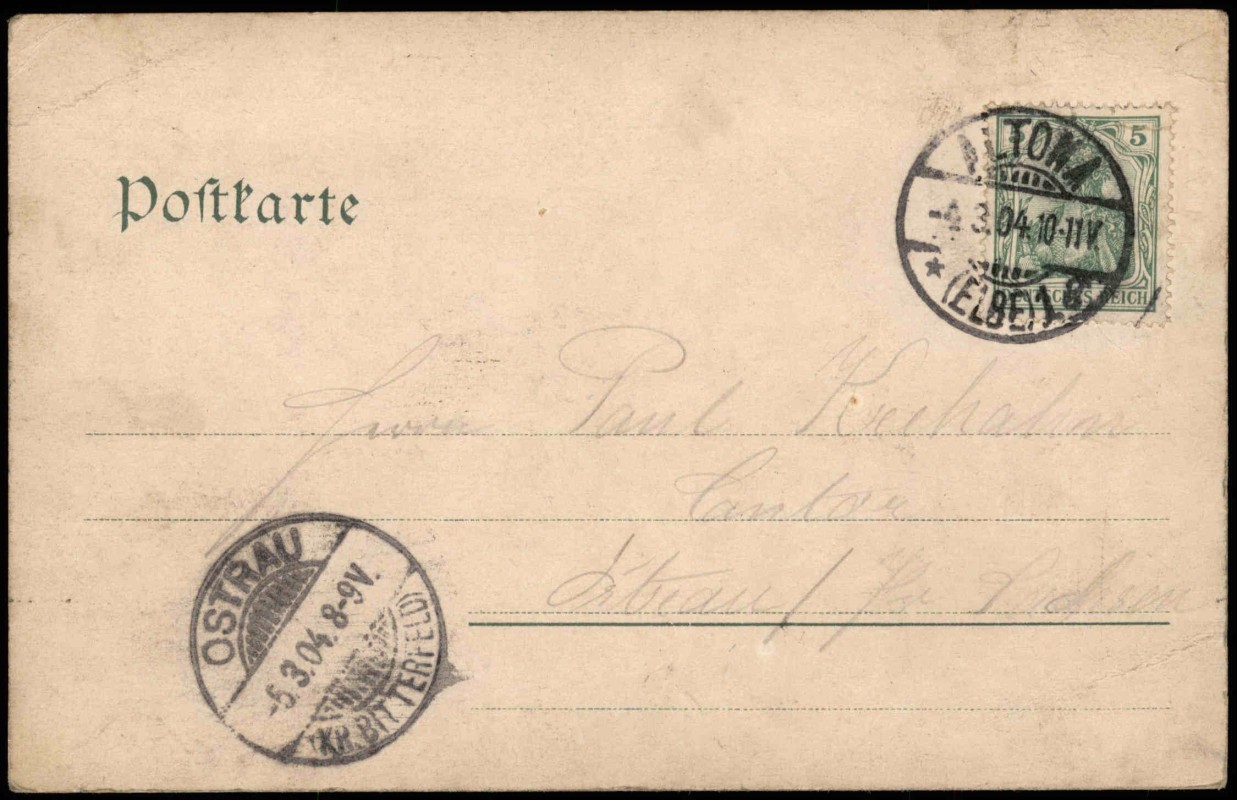 5 5
DEUTSCHES REICH
ALTONA
-4.3.04.10-11V.
* (ELBE) 1 e
Postkarte
Herrn Paul
Cantor
Ostrau /
OSTRAU
-5.3.04.8-9V.
(KR. BITTERFELD)